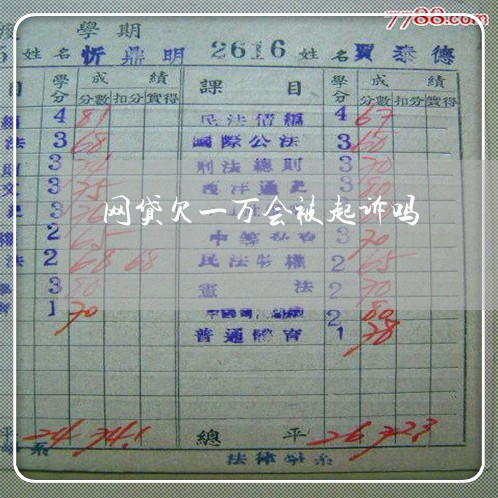 7788.com
學期
姓名 忻鼎明 2616 姓名 賈泰德
目 學分 成績 課目 學分 成績
分數 扣分 實得 分數 扣分 實得
4 81 民法債編 4 67
法 3 68 國際公法 3 60
3 刑法總則 3 70
3 75 西洋通史 3 80
網貸欠一万会被起诉吗
2 65 3 70
法 2 68 68 民法物權 2 65
3 80 憲法 2 70
1 70 2 80
普通體育 1 78
平 24 74.1 總平 26 72.3
系 法律學系